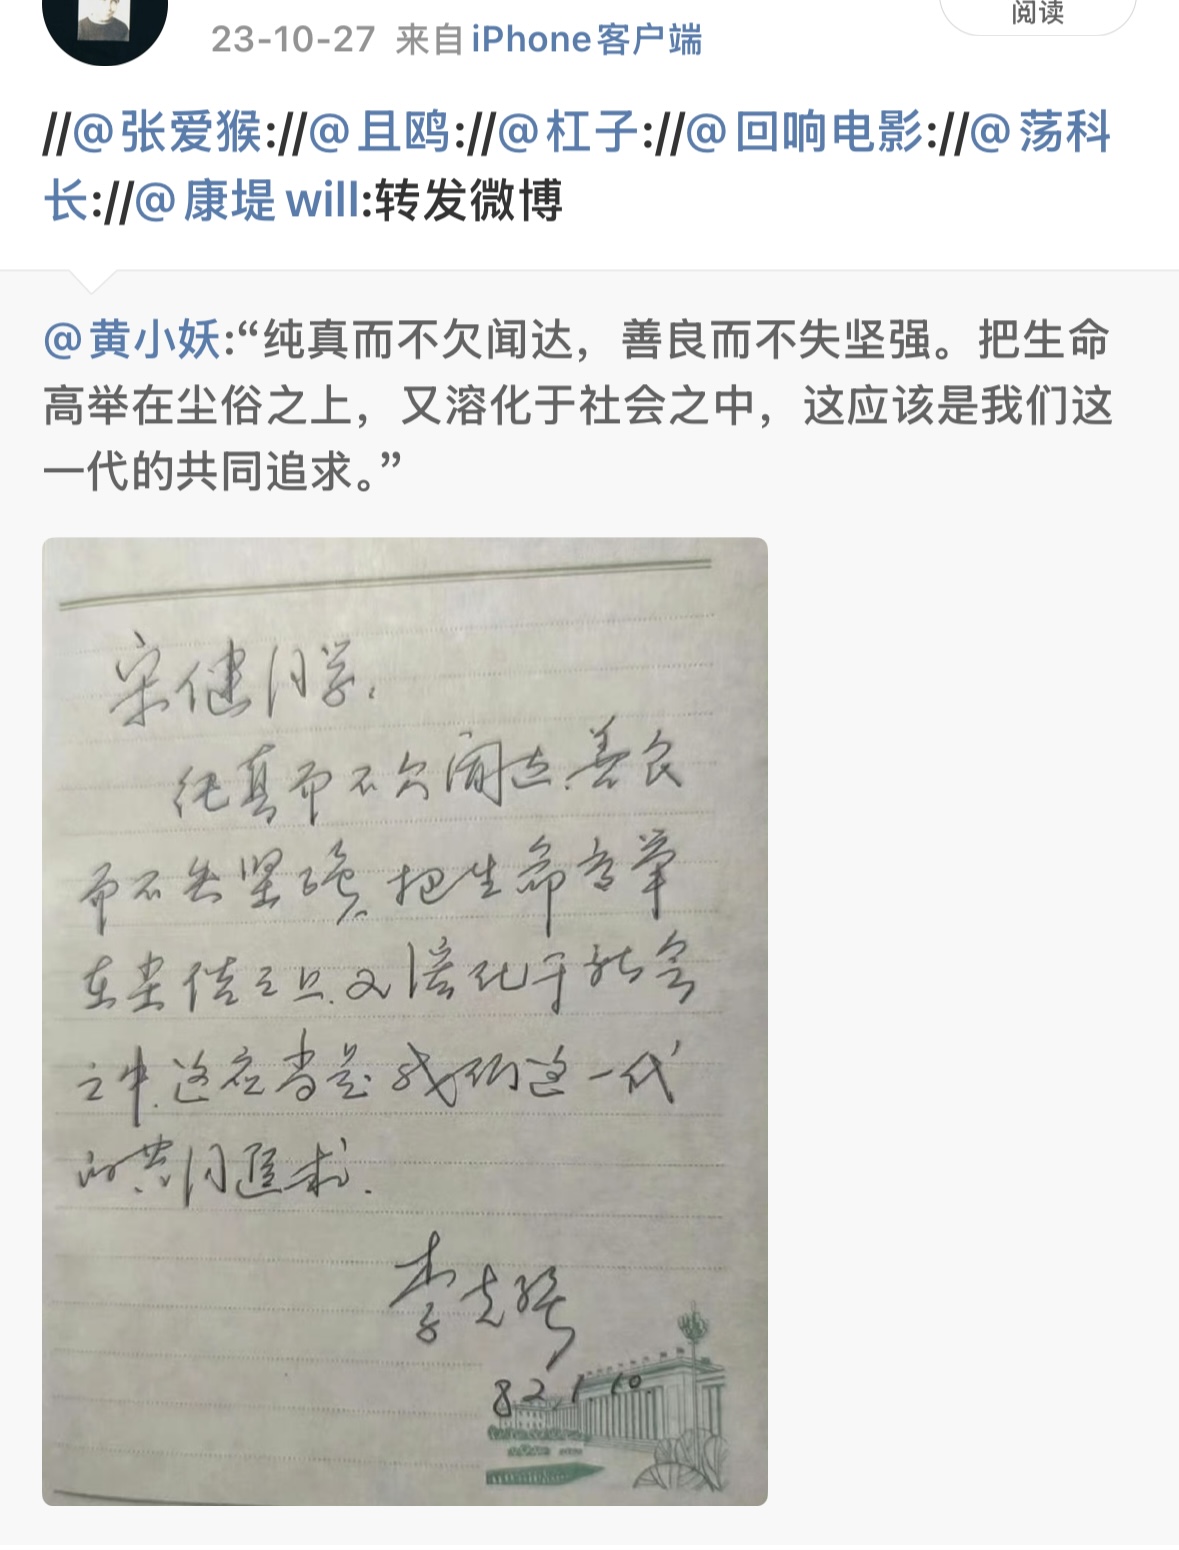 阅读
23-10-27 来自iPhone客户端
//@张爱猴://@且鸥://@杠子://@回响电影://@荡科
长://@康堤will:转发微博
@黄小妖:“纯真而不欠闻达，善良而不失坚强。把生命
高举在尘俗之上，又溶化于社会之中，这应该是我们这
一代的共同追求。”
宋健同学,
纯真而不欠闻达.善良
而不失坚强.把生命高举
在尘俗之上.又溶化于社会
之中.这应当是我们这一代
的共同追求.
李克强
82.1.10